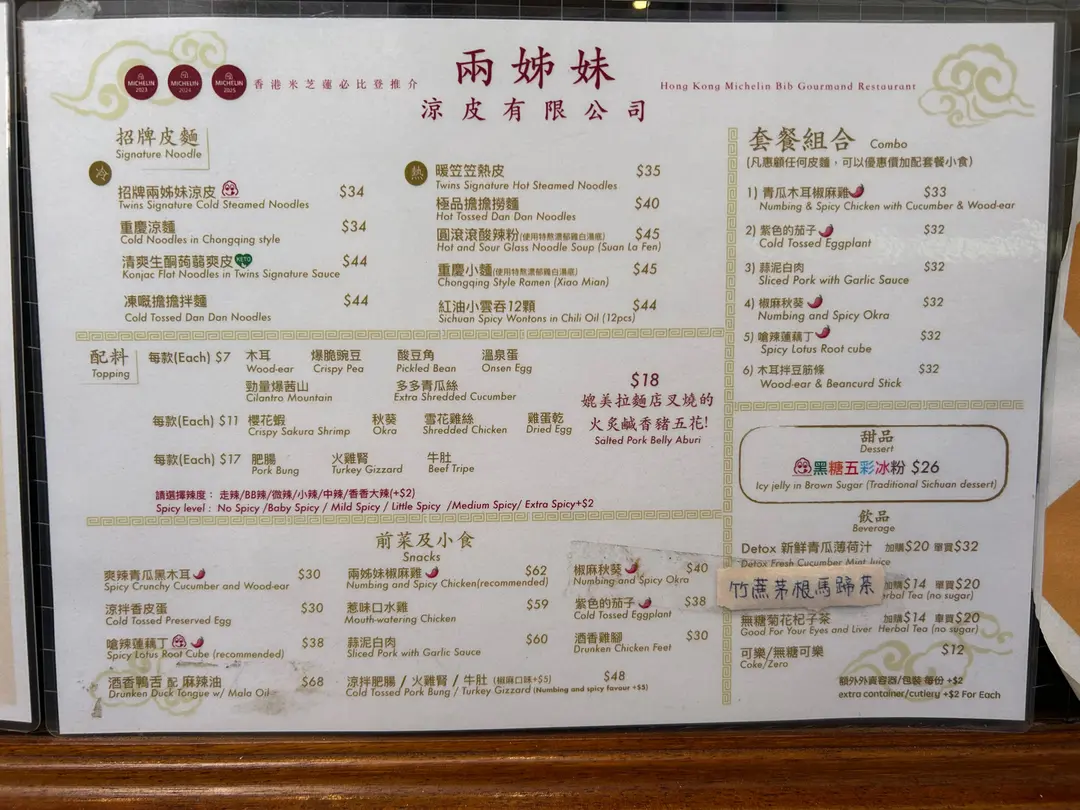 MICHELIN 2023
MICHELIN 2024
MICHELIN 2025
香港米芝蓮必比登推介
兩姊妹
涼皮有限公司
Hong Kong Michelin Bib Gourmand Restaurant
招牌皮麵
Signature Noodle
冷
招牌兩姊妹涼皮 $34
Twins Signature Cold Steamed Noodles
重慶涼麵 $34
Cold Noodles in Chongqing style
清爽生酮蒟蒻爽皮 KETO $44
Konjac Flat Noodles in Twins Signature Sauce
凍嘅擔擔拌麵 $44
Cold Tossed Dan Dan Noodles
熱
暖笠笠熱皮 $35
Twins Signature Hot Steamed Noodles
極品擔擔撈麵 $40
Hot Tossed Dan Dan Noodles
圓滾滾酸辣粉(使用特熬濃郁雞白湯底) $45
Hot and Sour Glass Noodle Soup (Suan La Fen)
重慶小麵(使用特熬濃郁雞白湯底) $45
Chongqing Style Ramen (Xiao Mian)
紅油小雲吞12顆 $44
Sichuan Spicy Wontons in Chili Oil (12pcs)
配料
Topping
每款(Each) $7 木耳 爆脆豌豆 酸豆角 溫泉蛋
Wood-ear Crispy Pea Pickled Bean Onsen Egg
勁量爆茜山 多多青瓜絲
Cilantro Mountain Extra Shredded Cucumber
每款(Each) $11 櫻花蝦 秋葵 雪花雞絲 雞蛋乾
Crispy Sakura Shrimp Okra Shredded Chicken Dried Egg
每款(Each) $17 肥腸 火雞腎 牛肚
Pork Bung Turkey Gizzard Beef Tripe
$18
媲美拉麵店叉燒的
火炙鹹香豬五花!
Salted Pork Belly Aburi
請選擇辣度： 走辣/BB辣/微辣/小辣/中辣/香香大辣(+$2)
Spicy level : No Spicy /Baby Spicy / Mild Spicy / Little Spicy /Medium Spicy/ Extra Spicy+$2
前菜及小食
Snacks
爽辣青瓜黑木耳 $30
Spicy Crunchy Cucumber and Wood-ear
涼拌香皮蛋 $30
Cold Tossed Preserved Egg
嗆辣蓮藕丁 配 $38
Spicy Lotus Root Cube (recommended)
酒香鴨舌 配 麻辣油 $68
Drunken Duck Tongue w/ Mala Oil
兩姊妹椒麻雞 $62
Numbing and Spicy Chicken(recommended)
惹味口水雞 $59
Mouth-watering Chicken
蒜泥白肉 $60
Sliced Pork with Garlic Sauce
涼拌肥腸 / 火雞腎 / 牛肚 (椒麻口味+$5) $48
Cold Tossed Pork Bung / Turkey Gizzard (Numbing and spicy favour +$5)
椒麻秋葵 $40
Numbing and Spicy Okra
紫色的茄子 $38
Cold Tossed Eggplant
酒香雞腳 $30
Drunken Chicken Feet
套餐組合 Combo
(凡惠顧任何皮麵，可以優惠價加配套餐小食)
1) 青瓜木耳椒麻雞 $33
Numbing & Spicy Chicken with Cucumber & Wood-ear
2) 紫色的茄子 $32
Cold Tossed Eggplant
3) 蒜泥白肉 $32
Sliced Pork with Garlic Sauce
4) 椒麻秋葵 $32
Numbing and Spicy Okra
5) 嗆辣蓮藕丁 $32
Spicy Lotus Root cube
6) 木耳拌豆筋條 $32
Wood-ear & Beancurd Stick
甜品
Dessert
黑糖五彩冰粉 $26
Icy jelly in Brown Sugar (Traditional Sichuan dessert)
飲品
Beverage
Detox 新鮮青瓜薄荷汁 加購$20 單買$32
Detox Fresh Cucumber Mint Juice
竹蔗茅根馬蹄茶 加購$14 單買$20
erbal Tea (no sugar)
無糖菊花杞子茶 加購$14 單買$20
Good For Your Eyes and Liver Herbal Tea (no sugar)
可樂/無糖可樂 $12
Coke/Zero
額外外賣容器/包裝 每份 +$2
extra container/cutlery +$2 For Each